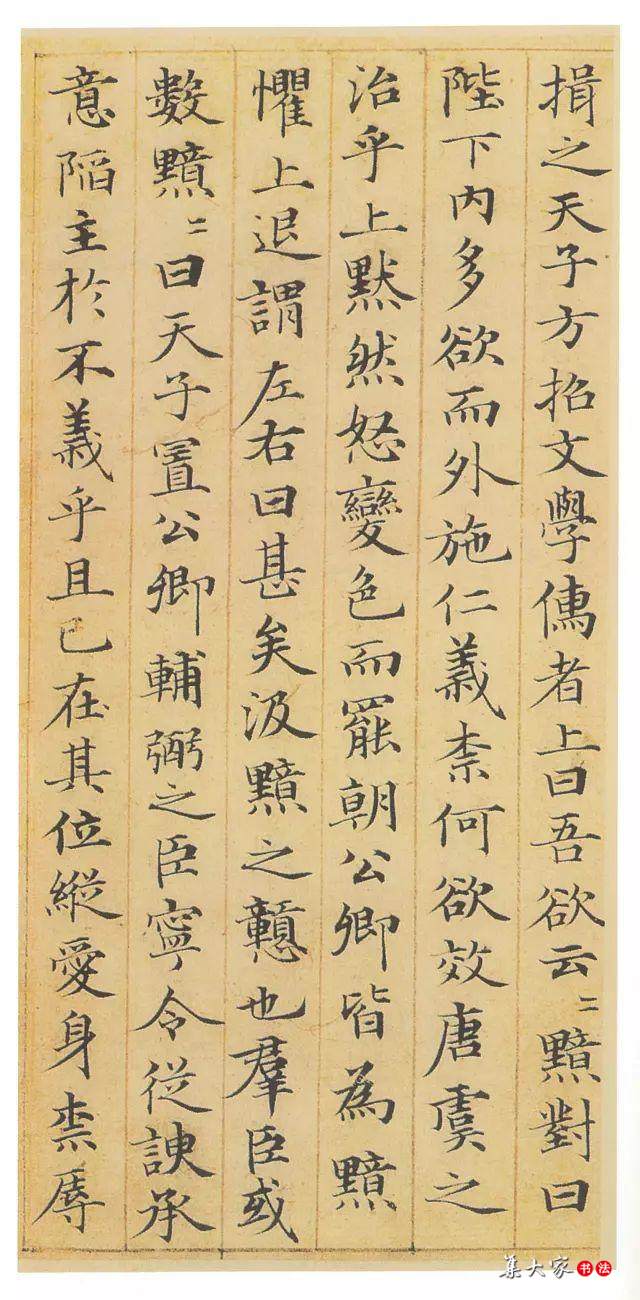 揖之天子方招文學儒者上曰吾欲云〻黯對曰
陛下內多欲而外施仁義柰何欲效唐虞之
治乎上黙然怒變色而罷朝公卿皆為黯
懼上退謂左右曰甚矣汲黯之戇也羣臣或
數黯〻曰天子置公卿輔弼之臣寧令從諛承
意陷主於不義乎且已在其位縱愛身柰辱
集大家书法